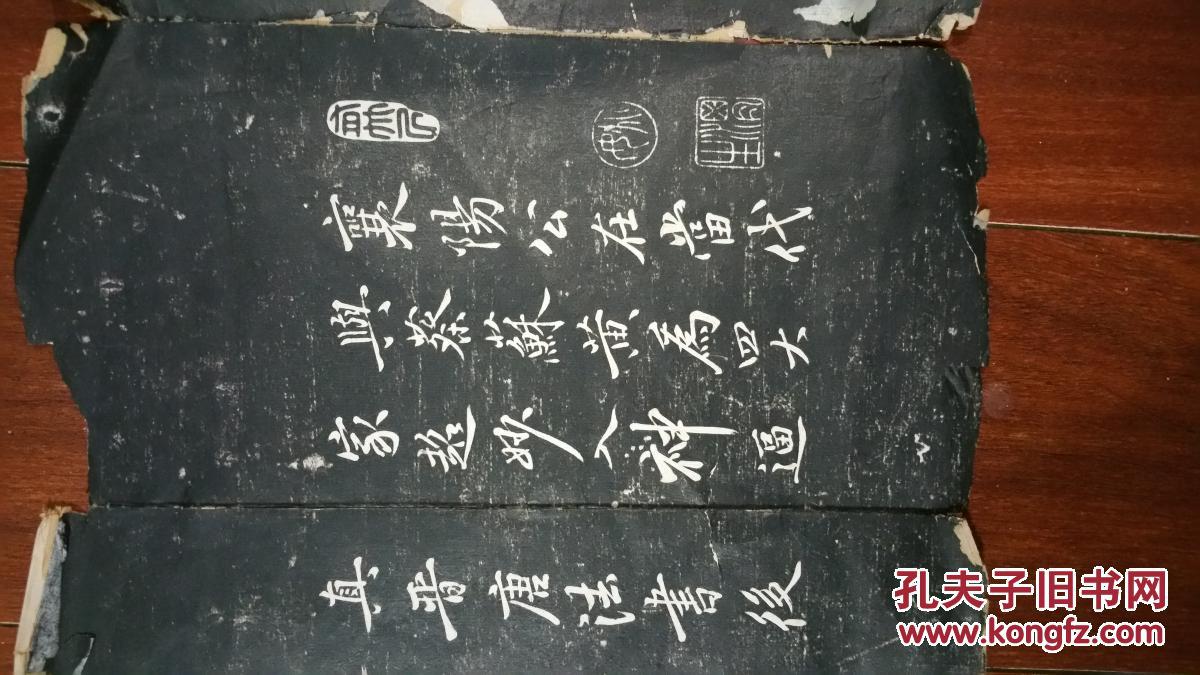 襄陽公在當代
與蔡蘇黃為四大
家超妙入神逼
真晉唐法書後
孔夫子旧书网
www.kongfz.com